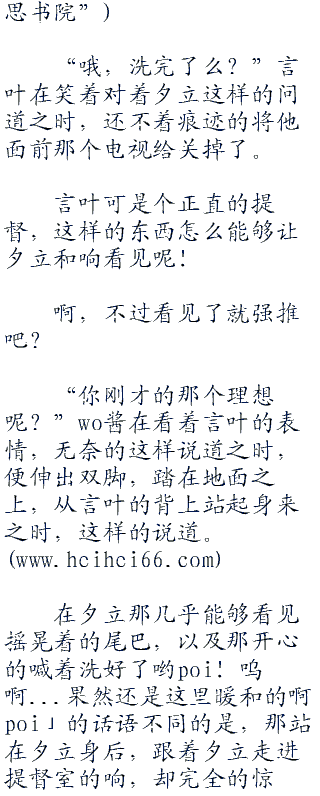 思书院”)
“哦，洗完了么？”言
叶在笑着对着夕立这样的问
道之时，还不着痕迹的将他
面前那个电视给关掉了。
言叶可是个正直的提
督，这样的东西怎么能够让
夕立和响看见呢！
啊，不过看见了就强推
吧？
“你刚才的那个理想
呢？”wo酱在看着言叶的表
情，无奈的这样说道之时，
便伸出双脚，踏在地面之
上，从言叶的背上站起身来
之时，这样的说道。
(www.hcihci66.com)
在夕立那几乎能够看见
摇晃着的尾巴，以及那开心
的喊着洗好了哟poi！呜
啊...果然还是这里暖和的啊
poi」的话语不同的是，那站
在夕立身后，跟着夕立走进
提督室的响，却完全的惊